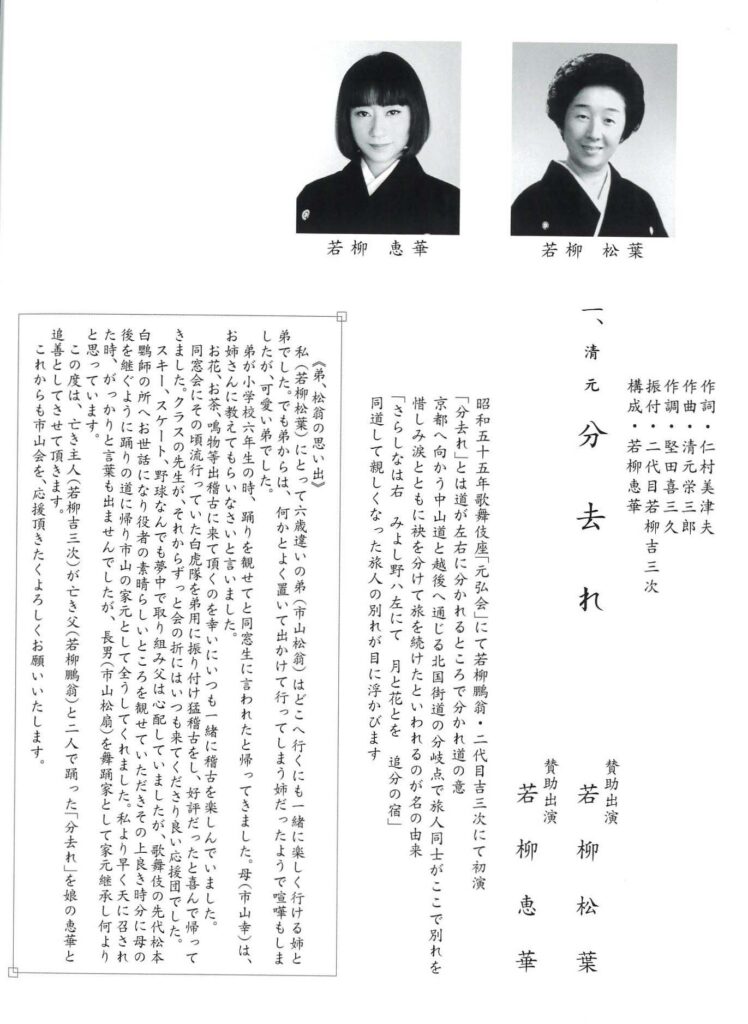 若柳 松葉
若柳 恵華
作詞・仁村美津夫
作曲・清元栄三郎
作調・堅田喜三久
振付・二代目若柳吉三次
構成・若柳恵華
一、清元 分去れ
賛助出演 若柳松葉
賛助出演 若柳恵華
昭和五十五年歌舞伎座「元弘会」にて若柳鵬翁・二代目吉三次にて初演
「分去れ」とは道が左右に分かれるところで分かれ道の意
京都へ向かう中山道と越後へ通じる北国街道の分岐点で旅人同士がここで別れを
惜しみ涙とともに袂を分けて旅を続けたといわれるのが名の由来
「さらしなは右 みよし野ハ左にて 月と花とを 追分の宿」
同道して親しくなった旅人の別れが目に浮かびます
《弟、松翁の思い出》
私(若柳松葉)にとって六歳違いの弟(市山松翁)はどこへ行くにも一緒に楽しく行ける姉と
弟でした。でも弟からは、何かとよく置いて出かけて行ってしまう姉だったようで喧嘩もしま
したが、可愛い弟でした。
弟が小学校六年生の時、踊りを観せてと同窓生に言われたと帰ってきました。母(市山幸)は、
お姉さんに教えてもらいなさいと言いました。
お花、お茶、鳴物等出稽古に来て頂くのを幸いにいつも一緒に稽古を楽しんでいました。
同窓会にその頃流行っていた白虎隊を弟用に振り付け猛稽古をし、好評だったと喜んで帰って
きました。クラスの先生が、それからずっと会の折にはいつも来てくださり良い応援団でした。
スキー、スケート、野球なんでも夢中で取り組み父は心配していましたが、歌舞伎の先代松本
白鸚師の所へお世話になり役者の素晴らしいところを観せていただきその上良き時分に母の
後を継ぐように踊りの道に帰り市山の家元として全うしてくれました。私より早く天に召され
た時、がっかりと言葉も出ませんでしたが、長男(市山松扇)を舞踊家として家元継承し何より
と思っています。
この度は、亡き主人(若柳吉三次)が亡き父(若柳鵬翁)と二人で踊った「分去れ」を娘の恵華と
追善としてさせて頂きます。
これからも市山会を、応援頂きたくよろしくお願いいたします。